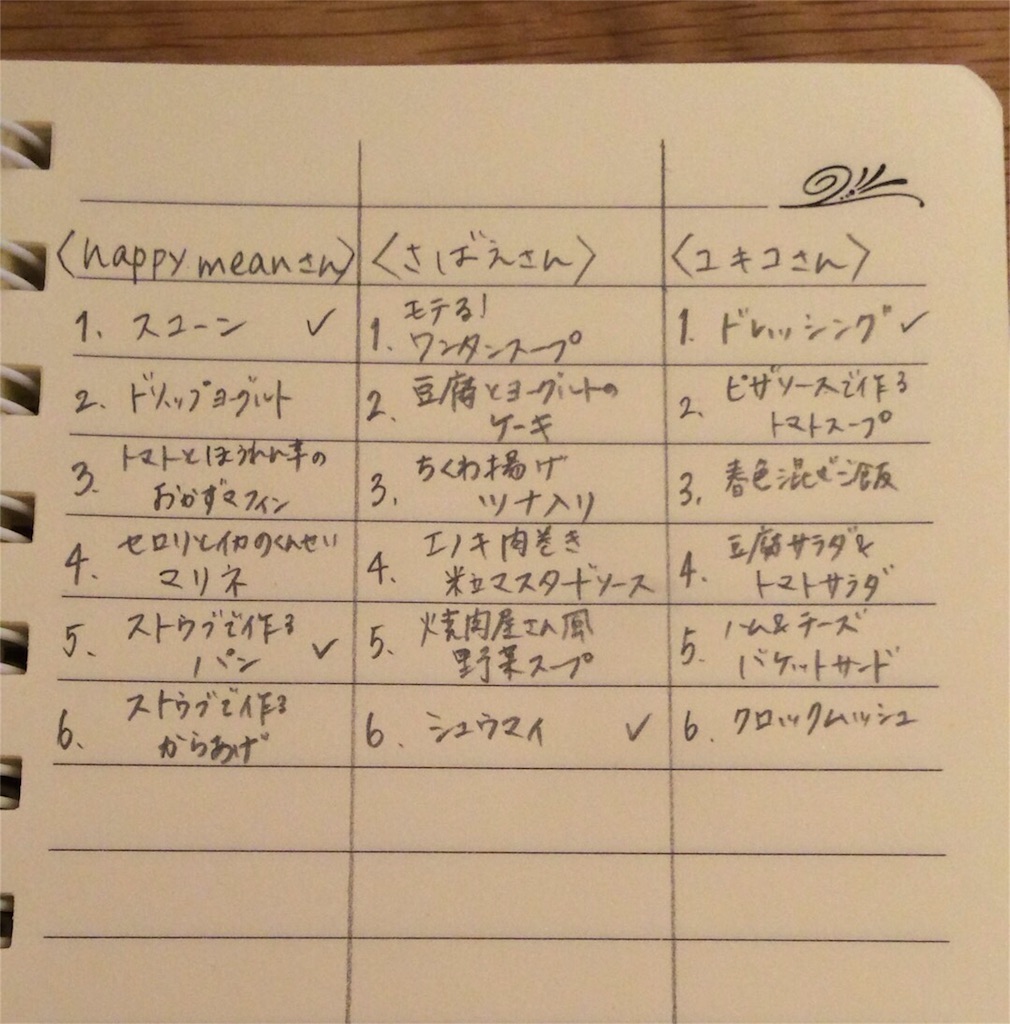 〈happy meanさん〉
1. スコーン ✓
2. ドリップヨーグルト
3. トマトとほうれん草の
おかずマフィン
4. セロリとイカのくんせい
マリネ
5. ストウブで作る
パン ✓
6. ストウブで作る
からあげ
〈さばえさん〉
1. モテる!
ワンタンスープ
2. 豆腐とヨーグルトの
ケーキ
3. ちくわ揚げ
ツナ入り
4. エノキ肉巻き
粒マスタードソース
5. 焼肉屋さん風
野菜スープ
6. シュウマイ ✓
〈ユキコさん〉
1. ドレッシング ✓
2. ピザソースで作る
トマトスープ
3. 春色混ぜご飯
4. 豆腐サラダ&
トマトサラダ
5. ハム&チーズ
バケットサンド
6. クロックムッシュ